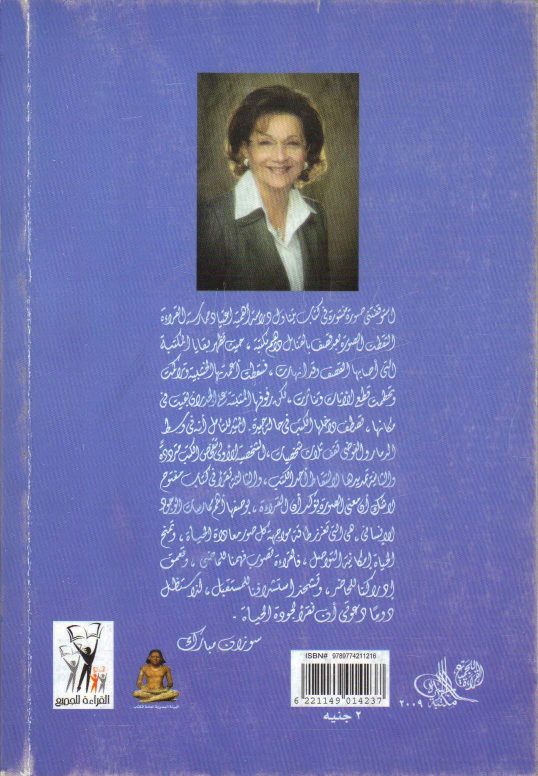 استوقفتنى صورة منشورة فى كتاب يتناول دراسة أهمية اعتياد ممارسة القراءة
التقطت الصورة بعد قصف بالقنابل دمر مكتبة، حيث تظهر بقايا المكتبة
التى أصابها القصف وقد انهارت، فسقطت أعمدتها الخشبية وتراكمت
وتحطمت قطع الأثاث وتناثرت، لكن رفوفها المثبتة على الجدران بقيت فى
مكانها، تصطف داخلها الكتب فى حالة جيدة. المثير للتأمل أنه فى وسط
الدمار والفوضى تقف ثلاث شخصيات، الشخصية الأولى تتفحص الكتب مترددة
والثانية تمد يدها لالتقاط أحد الكتب، والثالثة تقرأ فى كتاب مفتوح
لا شك أن معنى الصورة يؤكد أن القراءة، بوصفها أهم ممارسات الوجود
الإنسانى، هى التى تعزز طاقة مواجهة كل صور معاداة الحياة، وتمنح
الحياة إمكانية التواصل، فالقراءة تصوب فهمنا للماضى، وتعمق
إدراكنا للحاضر، وتشحذ استشرافنا للمستقبل، لذلك ستظل
دوماً دعوتى أن نقرأ لجودة الحياة.
سوزان مبارك
القراءة للجميع
الهيئة المصرية العامة للكتاب
ISBN# 9789774211216
6 221149 014237
٢ جنيه
مكتبة ٢٠٠٩